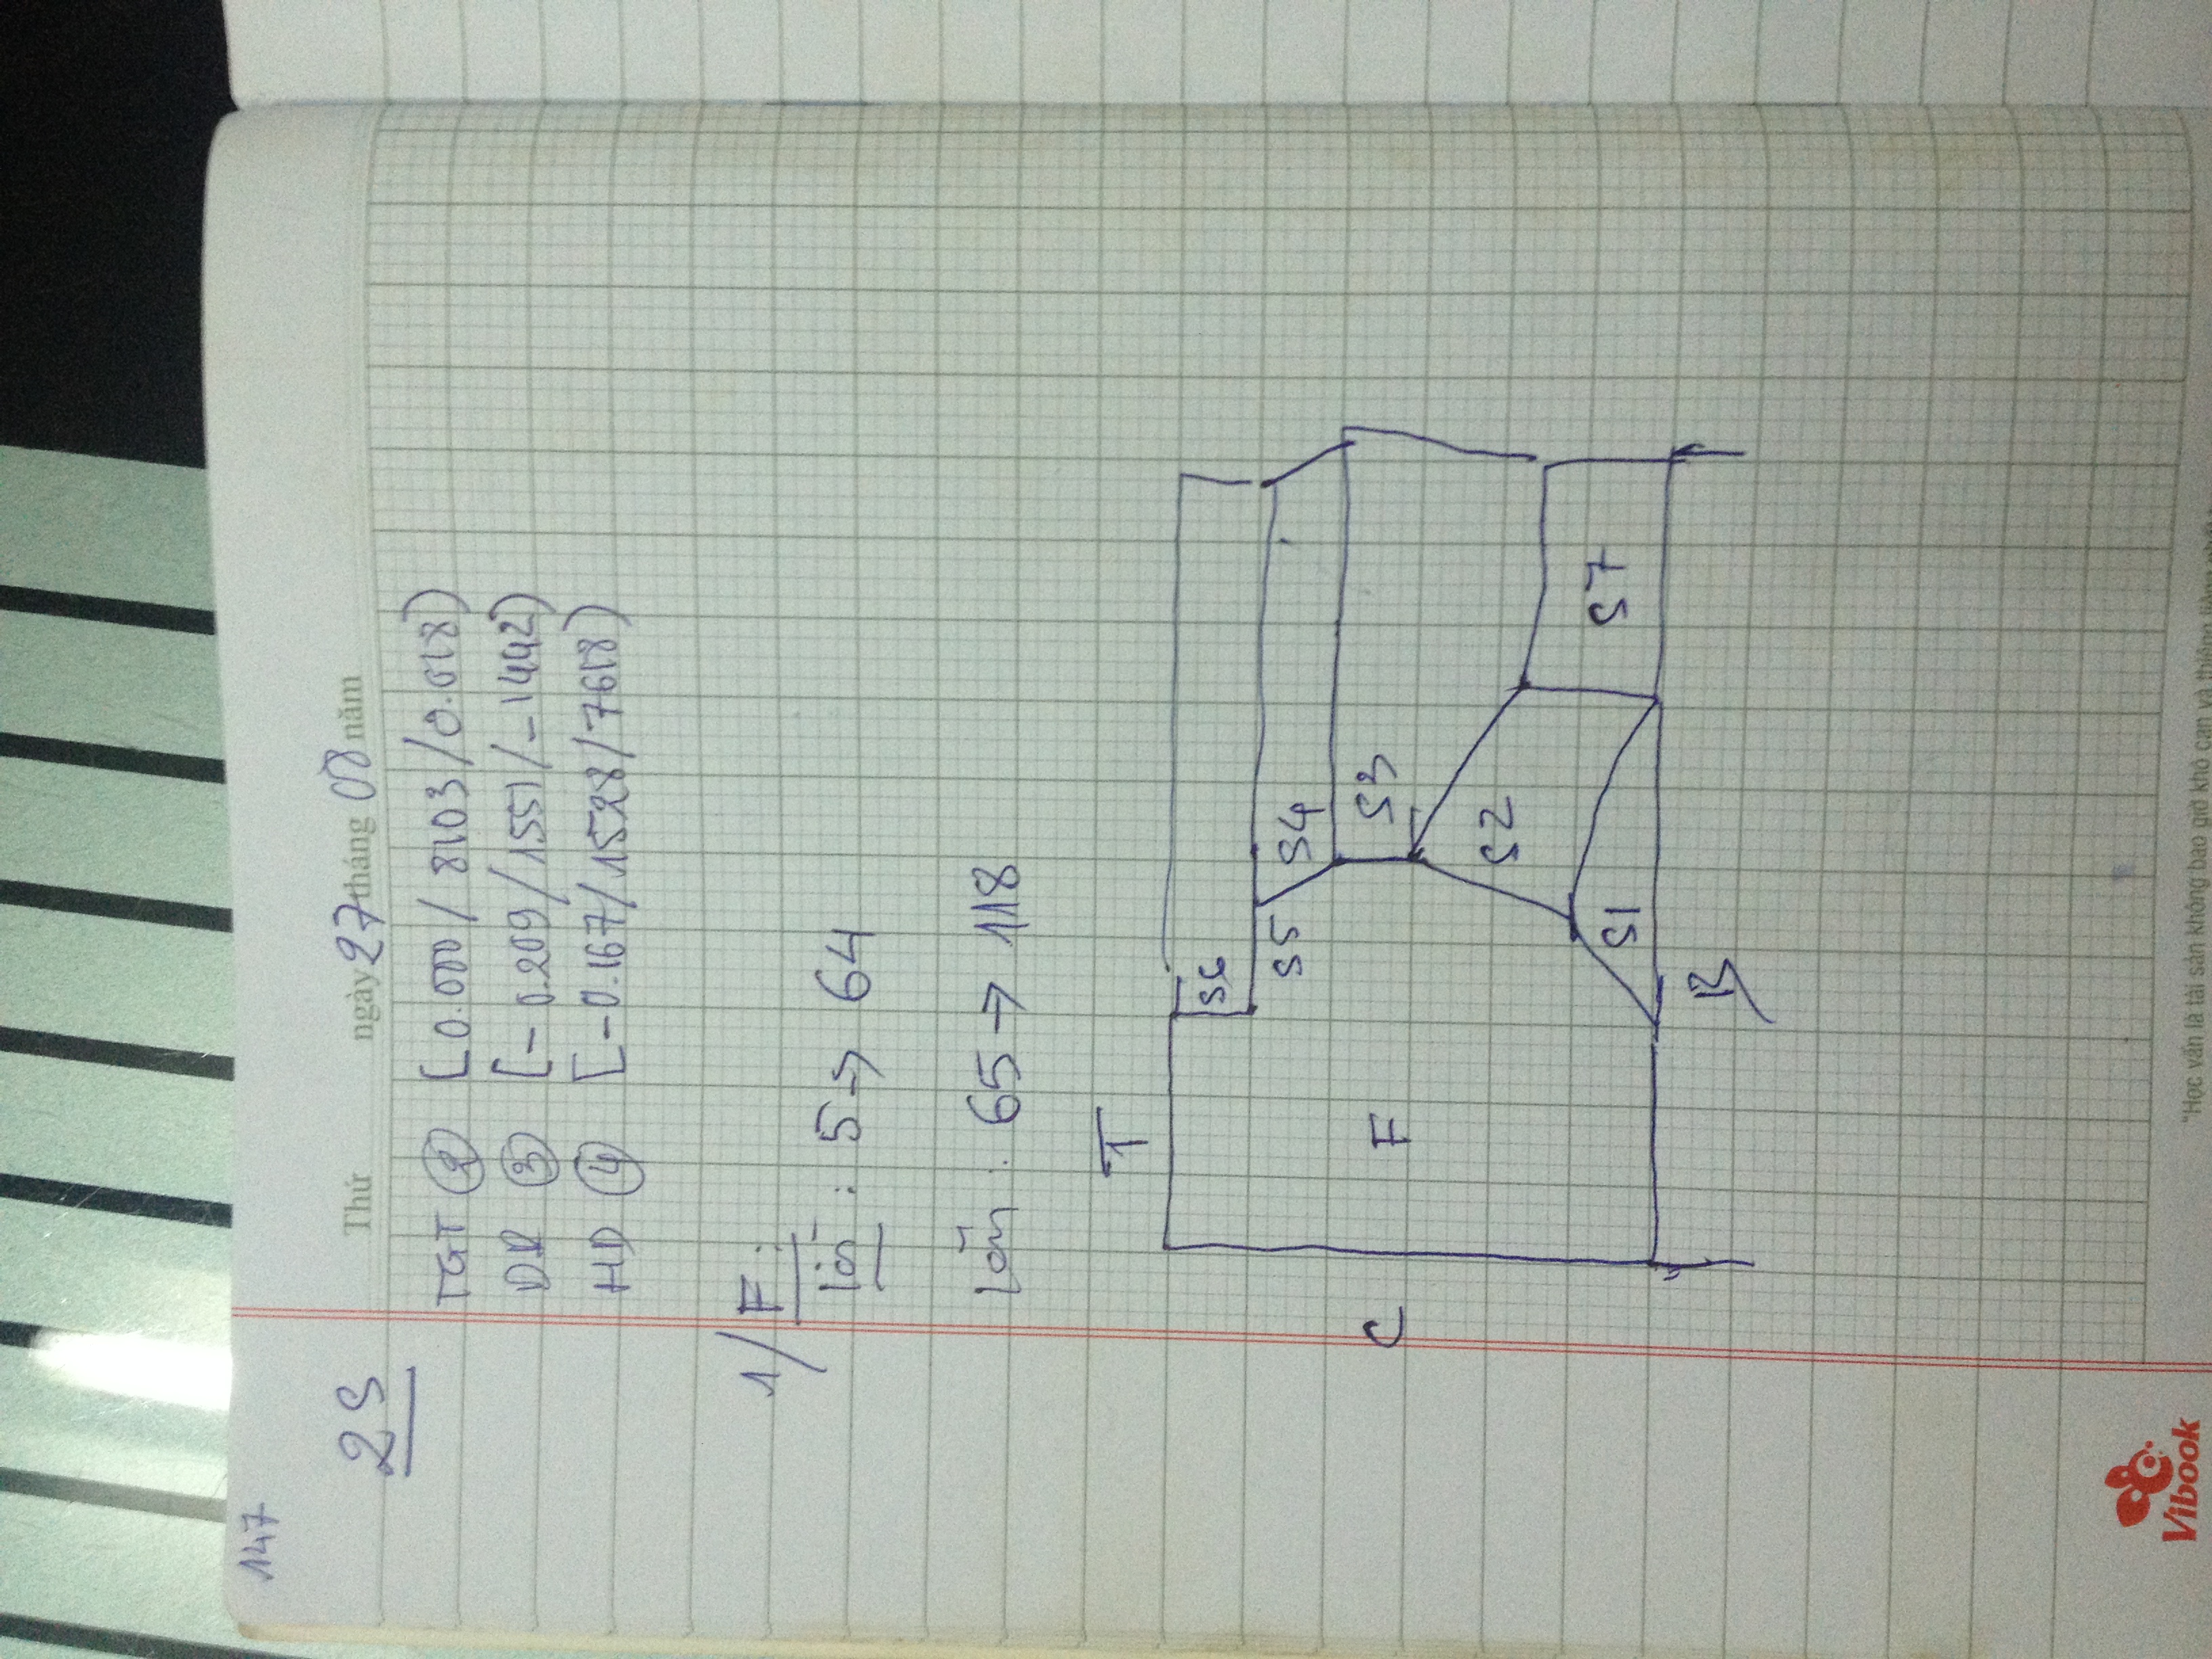 147
2S
Thứ ngày 27 tháng 08 năm
TGT ② [0.000/ 8103/0.018)
DR ③ [-0.209/1551/-1442)
HD ④ [-0.167/1528/7618)
1/ F:
lồi : 5 → 64
Lõm : 65 → 118
T
S6
S5 S4
C F S3
S2
S1 S7
B
Vibook
"Học vấn là tài sản không bao giờ khô cạn và thiêng liêng